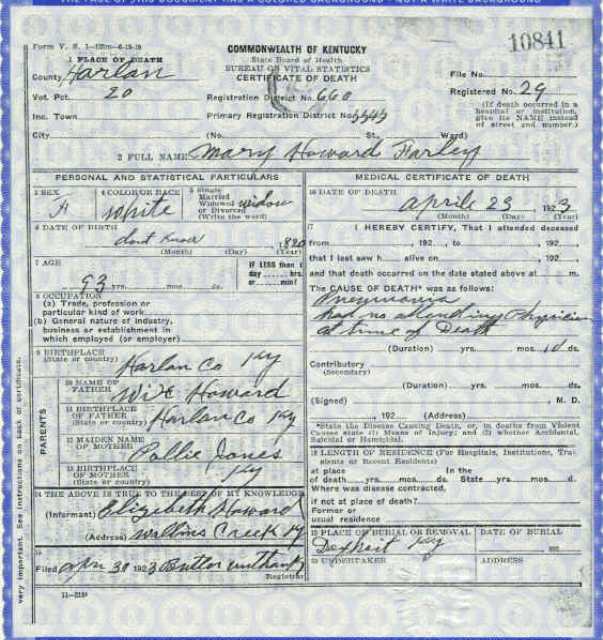 Form V. S. 1—125m—6-15-19
10841
COMMONWEALTH OF KENTUCKY
State Board of Health
BUREAU OF VITAL STATISTICS
CERTIFICATE OF DEATH
1 PLACE OF DEATH
County Harlan
File No.
Vot. Pct. 20
Registration District No. 660
Registered No. 29
Inc. Town
Primary Registration District No.
(If death occurred in a hospital or institution, give its NAME instead of street and number.)
City (No. St. Ward)
2 FULL NAME Mary Howard Farley
PERSONAL AND STATISTICAL PARTICULARS
3 SEX F
4 COLOR OR RACE White
5 Single Married Widowed or Divorced (Write the word) widow
6 DATE OF BIRTH
dont Know
(Month) (Day) (Year)
7 AGE
93 yrs. mos. ds.
IF LESS than 1 day hrs. or min?
8 OCCUPATION
(a) Trade, profession or particular kind of work
(b) General nature of industry, business or establishment in which employed (or employer)
9 BIRTHPLACE
(State or country) Harlan Co Ky
PARENTS
10 NAME OF FATHER Howard
11 BIRTHPLACE OF FATHER (State or country) Harlan Co Ky
12 MAIDEN NAME OF MOTHER Jones
13 BIRTHPLACE OF MOTHER (State or country) Ky
14 THE ABOVE IS TRUE TO THE BEST OF MY KNOWLEDGE
(Informant) Elizabeth Howard
(Address) Wallins Creek Ky
15
Filed Apr 30 1923
Registrar
11—3184
MEDICAL CERTIFICATE OF DEATH
16 DATE OF DEATH
Aprile 23 1923
(Month) (Day) (Year)
17 I HEREBY CERTIFY, That I attended deceased
from , 192 , to , 192 ,
that I last saw h alive on , 192 ,
and that death occurred on the date stated above at m.
The CAUSE OF DEATH* was as follows:
Pneumonia
had no attending Physician
at time of Death
(Duration) yrs. mos. 10 ds.
Contributory
(Secondary)
(Duration) yrs. mos. ds.
(Signed) , M. D.
, 192 (Address)
*State the Disease Causing Death, or, in deaths from Violent Causes state (1) Means of Injury; and (2) whether Accidental, Suicidal or Homicidal.
18 LENGTH OF RESIDENCE (For Hospitals, Institutions, Transients or Recent Residents)
at place of death yrs. mos. ds. In the State yrs. mos. ds.
Where was disease contracted,
if not at place of death?
Former or
usual residence
19 PLACE OF BURIAL OR REMOVAL
Ky
DATE OF BURIAL
192
20 UNDERTAKER
ADDRESS
very important. See instructions on back of certificate.